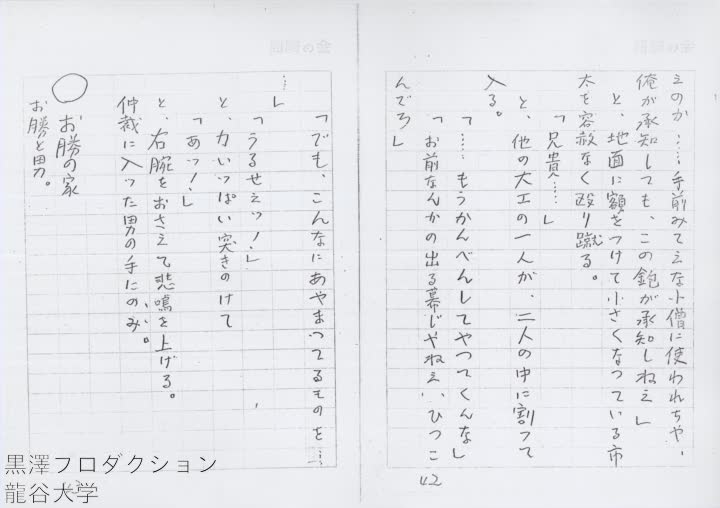 えのか……手前みてえな小僧に使われちや、
俺が承知しても、この鉋が承知しねえ」
と、地面に額をつけて小さくなつている市
太を容赦なく殴り蹴る。
「兄貴……」
と、他の大工の一人が、二人の中に割つて
入る。
「……もうかんべんしてやつてくんな」
「お前なんかの出る幕じやねえ、ひつこ
んでろ」
42
「でも、こんなにあやまつてるものを……
……」
「うるせえッ！」
と、力いつぱい突きのけて
「あッ！」
と、右腕をおさえて悲鳴を上げる。
仲裁に入つた男の手にのみ。
○ お勝の家
お勝と男。
黒澤プロダクション
龍谷大学